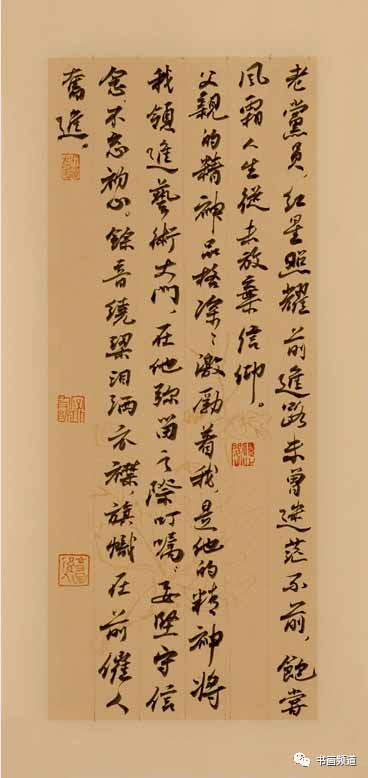 老黨員，紅星照耀前進路未曾迷茫不前，飽嘗
風霜人生從未放棄信仰。
父親的精神品格深深激勵着我，是他的精神將
我領進藝術大門，在他弥留之際叮囑：要堅守信
念，不忘初心。餘音繞梁泪洒衣襟，旗幟在前催人
奮進。
书画频道